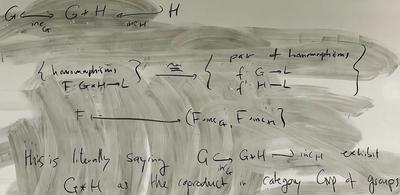 G ↪ G * H ↩ H
inc_G inc_H
{ homomorphisms F: G*H → L } ≅→ { pair of homomorphisms f: G → L f': H → L }
F ⟼ (F∘inc_G, F∘inc_H)
This is literally saying G ↪ inc_G G*H ↩ inc_H exhibit
G*H as the coproduct in category Grp of groups